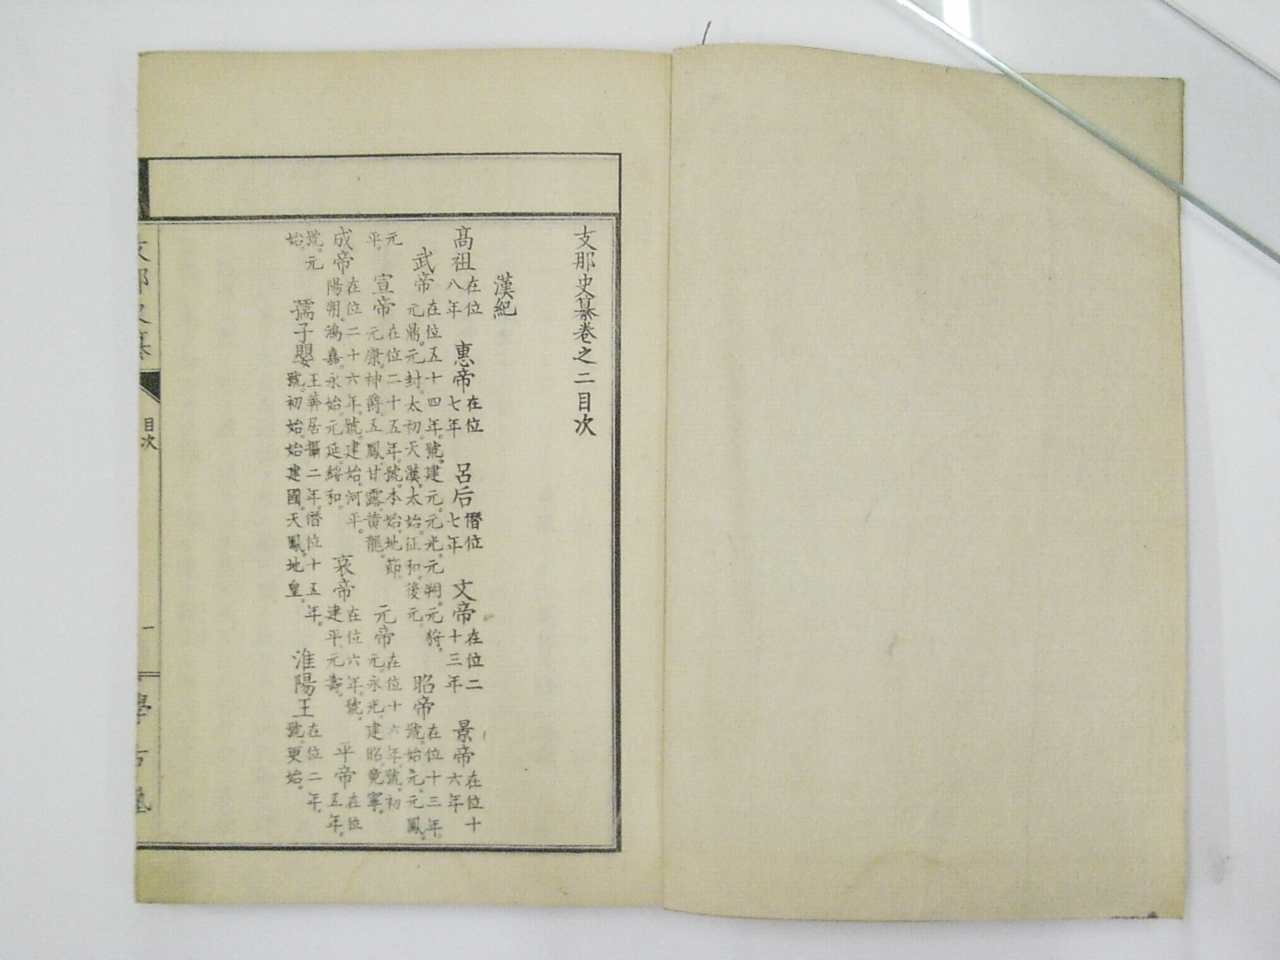 支那史纂卷之二目次
漢紀
高祖在位八年 惠帝在位七年 呂后僭位七年 文帝在位二十三年 景帝在位十六年
武帝在位五十四年。號。建元。元光。元朔。元狩。元鼎。元封。太初。天漢。太始。征和。後元。 昭帝在位十三年。號。始元。元鳳。元平。
宣帝在位二十五年。號。本始。地節。元康。神爵。五鳳。甘露。黃龍。 元帝在位十六年。號。初元。永光。建昭。竟寧。
成帝在位二十六年。號。建始。河平。陽朔。鴻嘉。永始。元延。綏和。 哀帝在位六年。號。建平。元壽。 平帝在位五年。號。元始。
孺子嬰王莽居攝二年。僭位十五年。號。初始。始建國。天鳳。地皇。 淮陽王在位二年。號。更始。
支那史纂
目次
一
學古塾